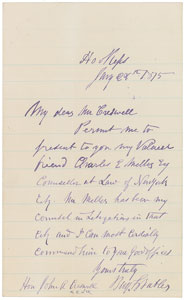 My dear Mr. Creswell
Permit me to
present to you my Valued
friend Charles E. Miller Esq
Counsellor at Law of New York
City Mr. Miller has been my
counsel in Litigations in that
City and I can most cordially
commend him to your good offices
Yours truly
Hon John A.